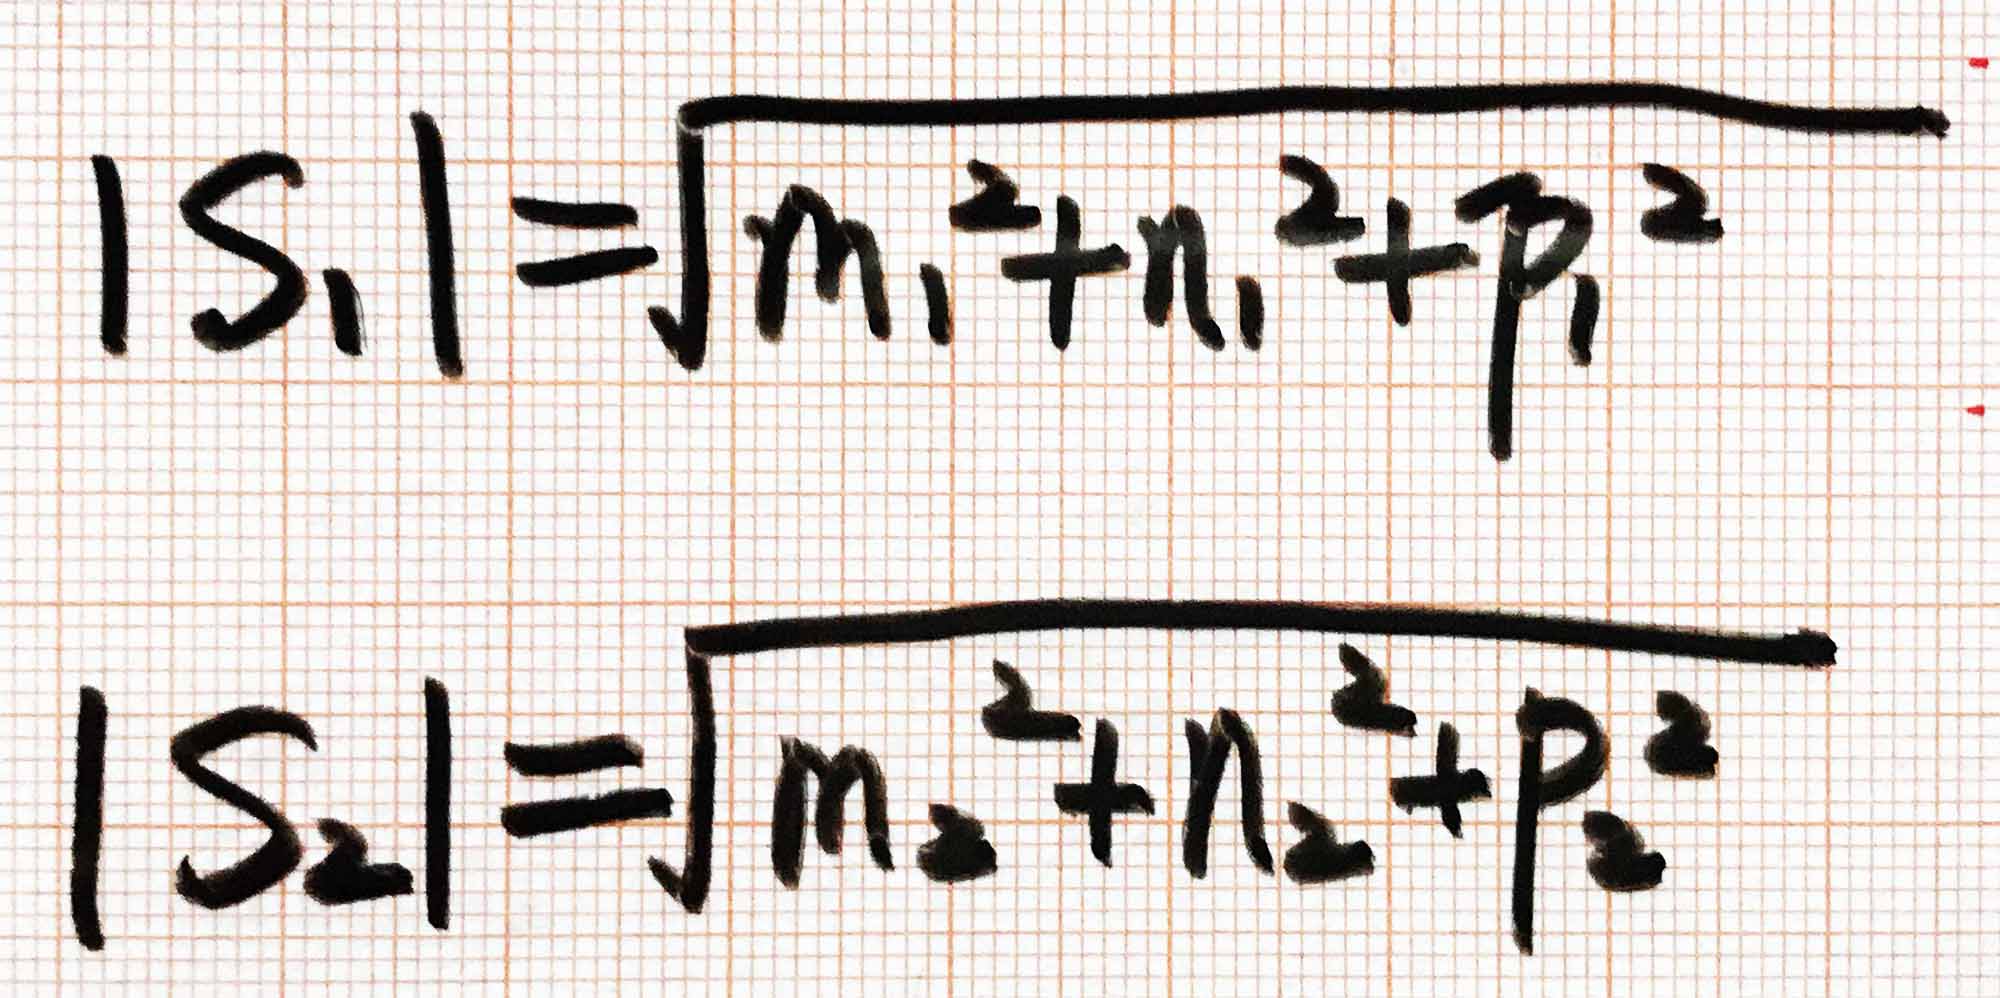 |S₁| = √(m₁² + n₁² + p₁²)
|S₂| = √(m₂² + n₂² + p₂²)